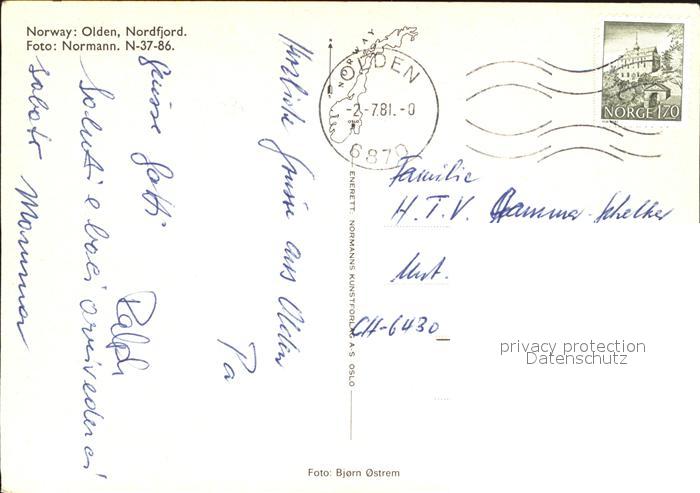 Norway: Olden, Nordfjord.
Foto: Normann. N-37-86.
NORWAY
OLDEN
-2.-7.81.-0
6870
NORGE 170
Herzliche Grüsse aus Olden
Pa
Grüsse Gotti
Ralph
Saluti e baci arrivederci
sabato Mamma
ENERETT: NORMANNS KUNSTFORLAG A-S OSLO
Familie
H. T. V. Schelker
CH-6430
privacy protection
Datenschutz
Foto: Bjørn Østrem